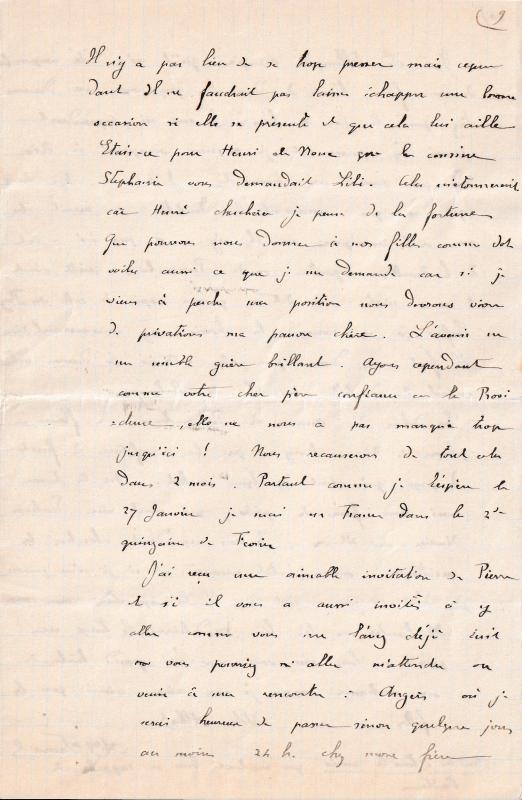 9
Il n'y a pas lieu de se trop presser mais cepen
dant il ne faudrait pas laisser échapper une bonne
occasion si elle se présente et que cela lui aille
Etait-ce pour Henri de Noue que la cousine
Stéphanie vous demandait Lili. Cela m'étonnerait
car Henri cherchera je pense de la fortune
Que pouvons nous donner à nos filles comme dot
voilà aussi ce que je me demande car si je
viens à perdre ma position nous devrons vivre
de privations ma pauvre chère. L'avenir ne
me semble guère brillant. Ayons cependant
comme votre cher père confiance en la Provi
dence, elle ne nous a pas manqué trop
jusqu'ici ! Nous recauserons de tout cela
dans 2 mois. Partant comme je l'espère le
27 Janvier je serai en France dans la 2de
quinzaine de Fevrier
J'ai reçu une aimable invitation de Pierre
et si il vous a aussi invités à y
aller comme vous me l'avez déjà écrit
vous pourriez y aller m'attendre ou
venir à ma rencontre à Angers où je
serai heureux de passer sinon quelques jours
au moins 24 h. chez mon frère